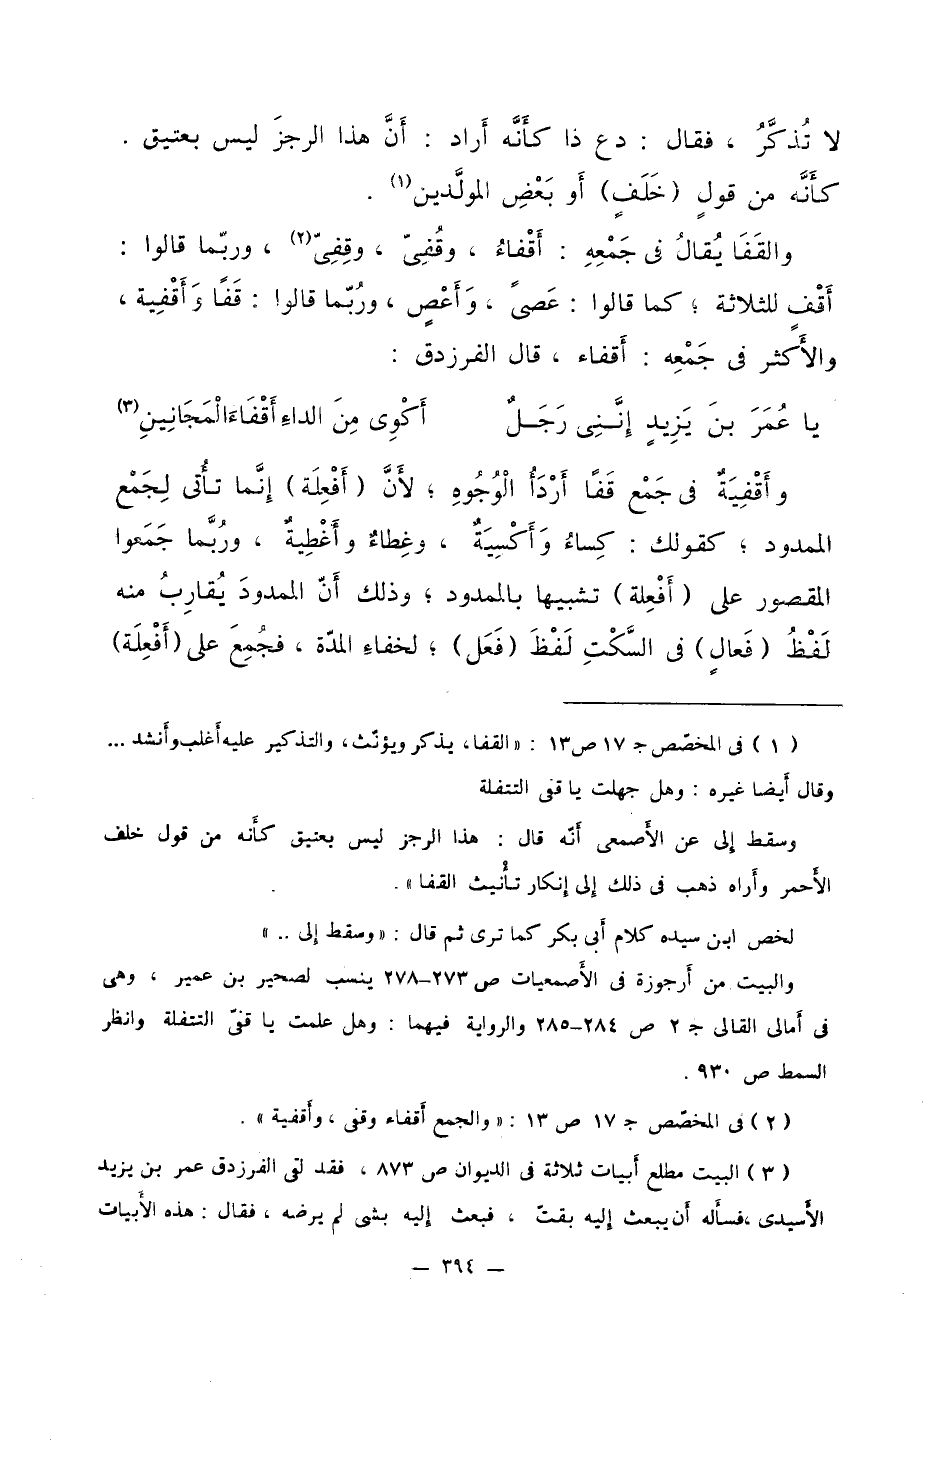 لا تُذكَّرُ ، فقال : دع ذا كأَنَّه أَراد : أَنَّ هذا الرجزَ ليس بعتيق .
كأَنَّه من قولِ (خَلَفٍ) أَو بَعْضِ المولَّدين(١) .
والقَفَا يُقالُ فى جَمْعِهِ : أَقْفاءُ ، وقُفِىّ ، وقِفِىّ(٢) ، وربّما قالوا :
أَقْفٍ للثلاثة ؛ كما قالوا : عَصىً ، وَأَعْصٍ ، ورُبّما قالوا : قَفًا وَأَقْفِية ،
والأَكثر فى جَمْعِه : أَقفاء ، قال الفرزدق :
يا عُمَرَ بنَ يَزِيدٍ إِنَّنِى رَجَلٌ أَكْوِى مِنَ الداءِ أَقْفَاءَ الْمَجَانِينِ(٣)
وأَقْفِيَةٌ فى جَمْعِ قَفًا أَرْدَأُ الْوُجُوهِ ؛ لأَنَّ (أَفْعِلَة) إِنَّما تأْتى لِجَمْعِ
الممدود ؛ كقولك : كِساءُ وَأَكْسِيَةٌ ، وغِطاءٌ وأَغْطِيةٌ ، ورُبَّما جَمَعوا
المقصور على (أَفْعِلة) تشبيها بالممدود ؛ وذلك أَنّ الممدودَ يُقاربُ منه
لَفْظُ (فَعالٍ) فى السَّكْتِ لَفْظَ (فَعَل) ؛ لخفاءِ المدّة ، فجُمِعَ على (أَفْعِلَة)
(١) فى المخصّص جـ ١٧ ص١٣ : «القفا، يذكر ويؤنّث، والتذكير عليه أَغلب وأَنشد ...
وقال أَيضا غيره : وهل جهلت يا قفى التتفلة
وسقط إلى عن الأَصمعى أَنّه قال : هذا الرجز ليس بعتيق كأَنه من قول خلف
الأَحمر وأَراه ذهب فى ذلك إلى إنكار تأْنيث القفا» .
لخص ابن سيده كلام أَبى بكر كما ترى ثم قال : «وسقط إلى .. »
والبيت من أَرجوزة فى الأَصمعيات ص ٢٧٣-٢٧٨ ينسب لصحير بن عمير ، وهى
فى أمالى القالى جـ ٢ ص ٢٨٤-٢٨٥ والرواية فيهما : وهل علمت يا قفىّ التتفلة وانظر
السمط ص ٩٣٠ .
(٢) فى المخصّص جـ ١٧ ص ١٣ : «والجمع أَقفاء وقفى ، وأَقفية» .
(٣) البيت مطلع أَبيات ثلاثة فى الديوان ص ٨٧٣ ، فقد لقى الفرزدق عمر بن يزيد
الأَسيدى ،فسأَله أَن يبعث إليه بقتّ ، فبعث إليه بشى لم يرضه ، فقال : هذه الأَبيات
— ٣٩٤ —